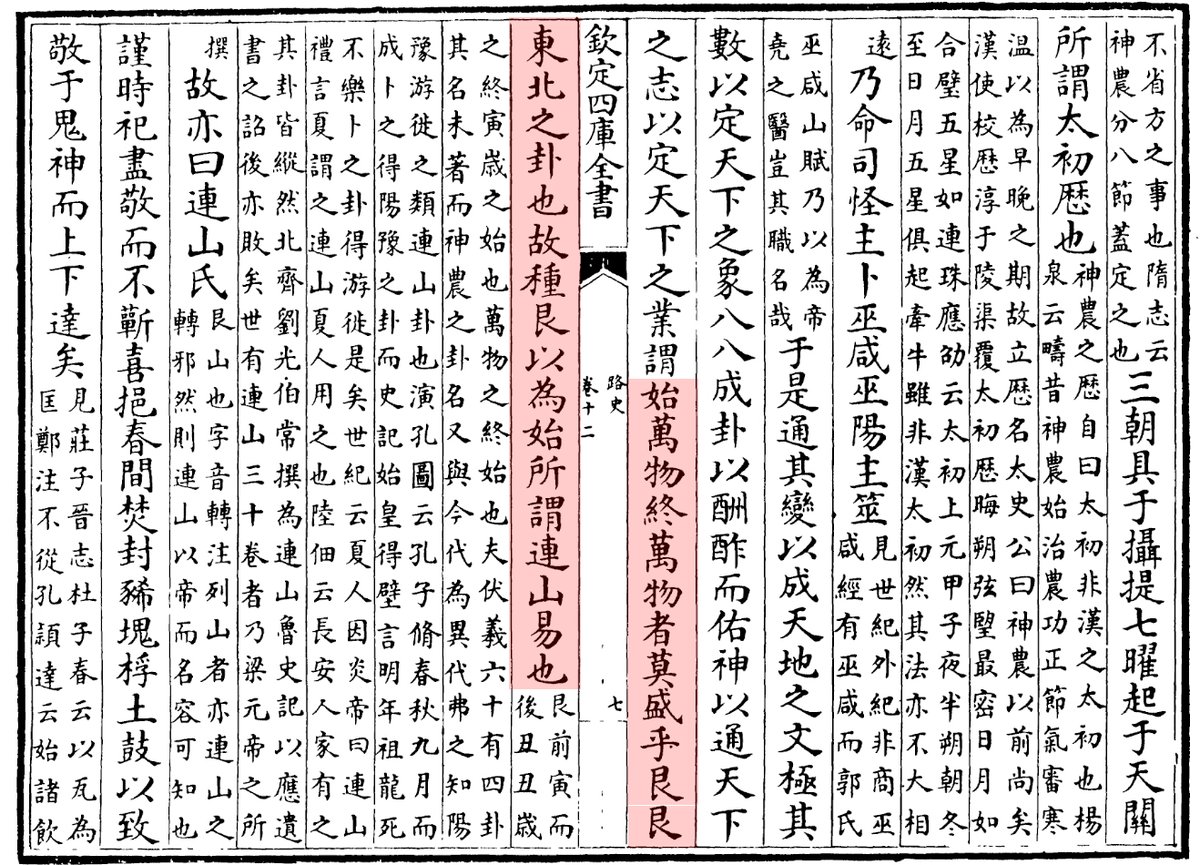 不省方之事也隋志云
神農分八節蓋定之也
三朝具于攝提七曜起于天關
所謂太初歷也
神農之歷自曰太初非漢之太初也楊
泉云疇昔神農始治農功正節氣審寒
温以為早晚之期故立歷名太史公曰神農以前尚矣
漢使校歷淳于陵渠覆太初歷晦朔弦朢最密日月如
合璧五星如連珠應劭云太初上元甲子夜半朔朝冬
至日月五星俱起牽牛雖非漢太初然其法亦不大相
遠
乃命司怪主卜巫咸巫陽主筮
見世紀外紀非商巫
咸經有巫咸而郭氏
巫咸山賦乃以為帝
堯之醫豈其職名哉
于是通其變以成天地之文極其
數以定天下之象八八成卦以酬酢而佑神以通天下
之志以定天下之業謂始萬物終萬物者莫盛乎艮艮
欽定四庫全書
路史
卷十二
七
東北之卦也故種艮以為始所謂連山易也
艮前寅而
後丑丑歲
之終寅歲之始也萬物之終始也夫伏羲六十有四卦
其名未著而神農之卦名又與今代為異代弗之知陽
豫游徙之類連山卦也演孔圖云孔子脩春秋九月而
成卜之得陽豫之卦而史記始皇得璧言明年祖龍死
不樂卜之卦得游徙是矣世紀云夏人因炎帝曰連山
禮言夏謂之連山夏人用之也陸佃云長安人家有之
其卦皆縱然北齊劉光伯常撰為連山魯史記以應遺
書之詔後亦敗矣世有連山三十卷者乃梁元帝之所
撰
故亦曰連山氏
艮山也字音轉注列山者亦連山之
轉邪然則連山以帝而名容可知也
謹時祀盡敬而不蘄喜挹春間焚封豨塊桴土鼓以致
敬于鬼神而上下達矣
見莊子晉志杜子春云以瓦為
匡鄭注不從孔頴達云始諸飲